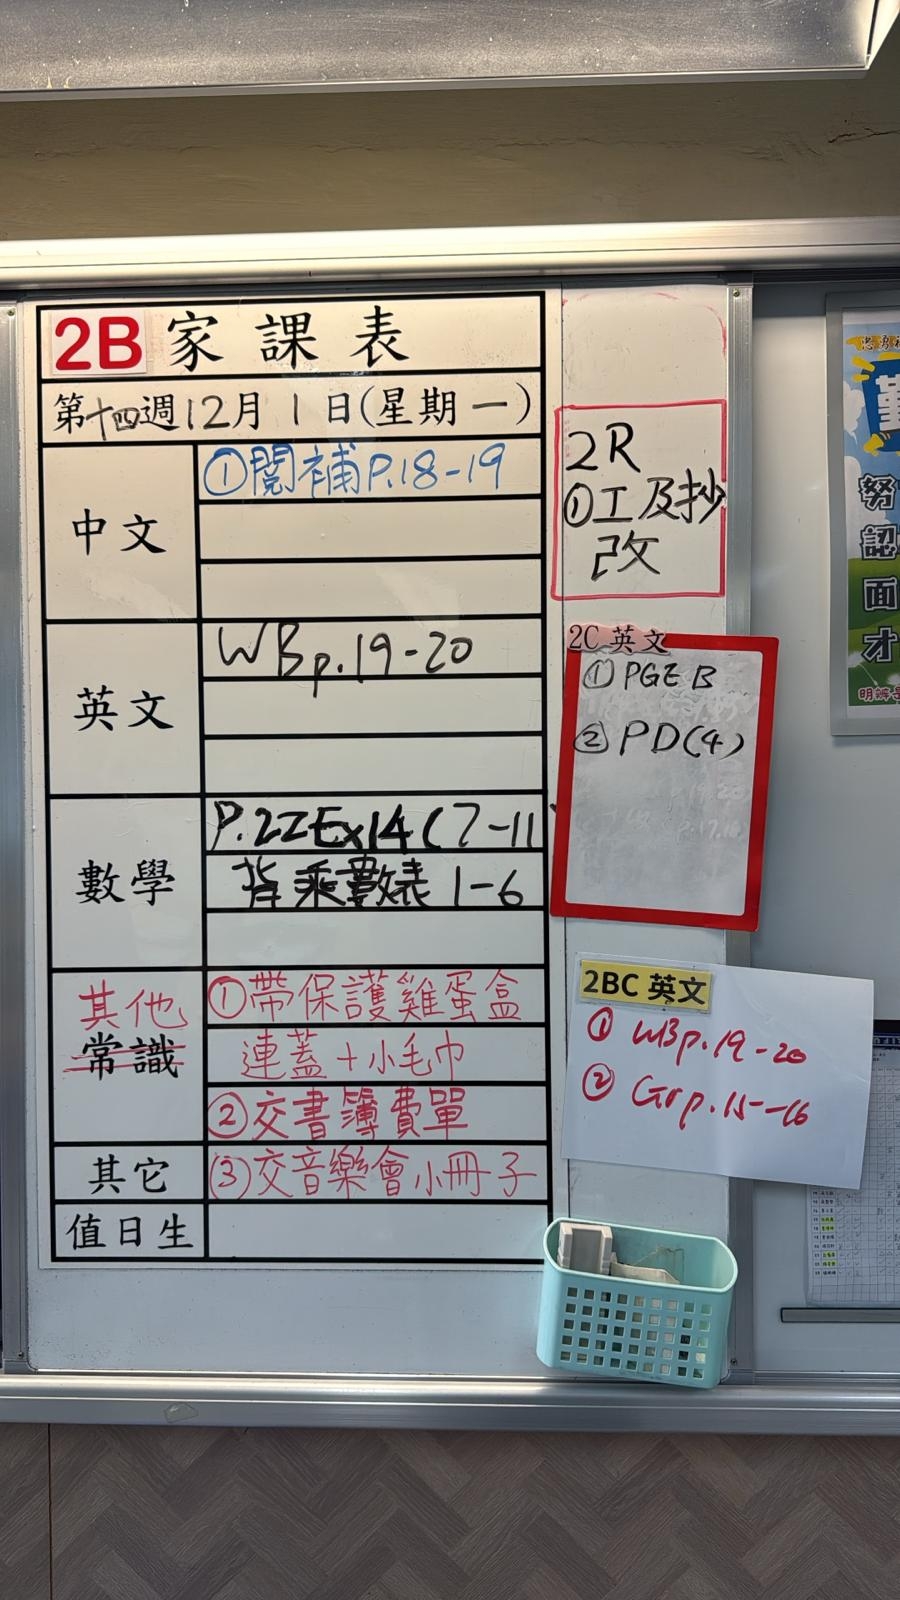 2B 家課表
第十四週12月1日(星期一)
中文
①閱補P.18-19
英文
WB p.19-20
數學
P.22 Ex14 (7-11
背乘數表 1-6
其他
常識
①帶保護雞蛋盒
連蓋+小毛巾
②交書簿費單
其它
③交音樂會小冊子
值日生
2R
①工及抄
改
2C 英文
① PGE B
② PD(4)
2BC 英文
① WB p.19-20
② Gr p.15-16
努
認
面
才